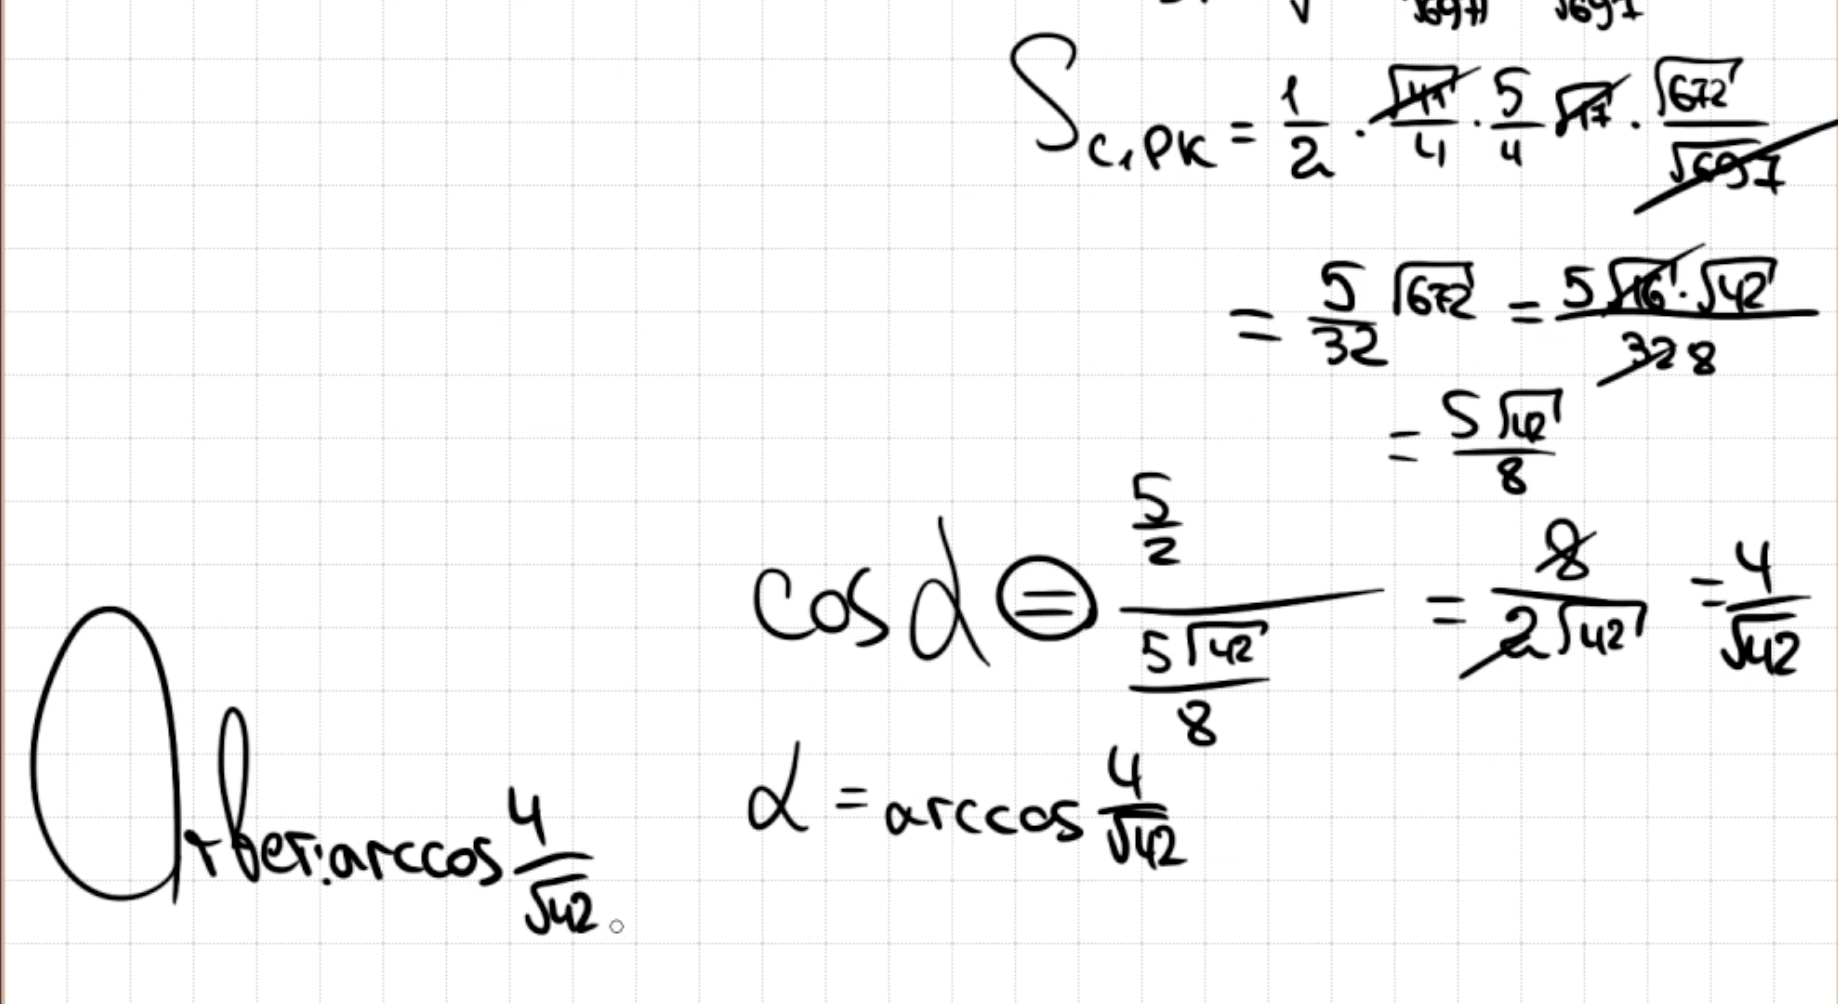 √697 √697
S_{C₁PK} = 1/2 · √41/4 · 5/4 √17 · √672/√697
= 5/32 √672 = 5√16 · √42 / 32 8
= 5√42/8
cos α = (5/2)/(5√42/8) = 8/(2√42) = 4/√42
α = arccos 4/√42
Ответ: arccos 4/√42.